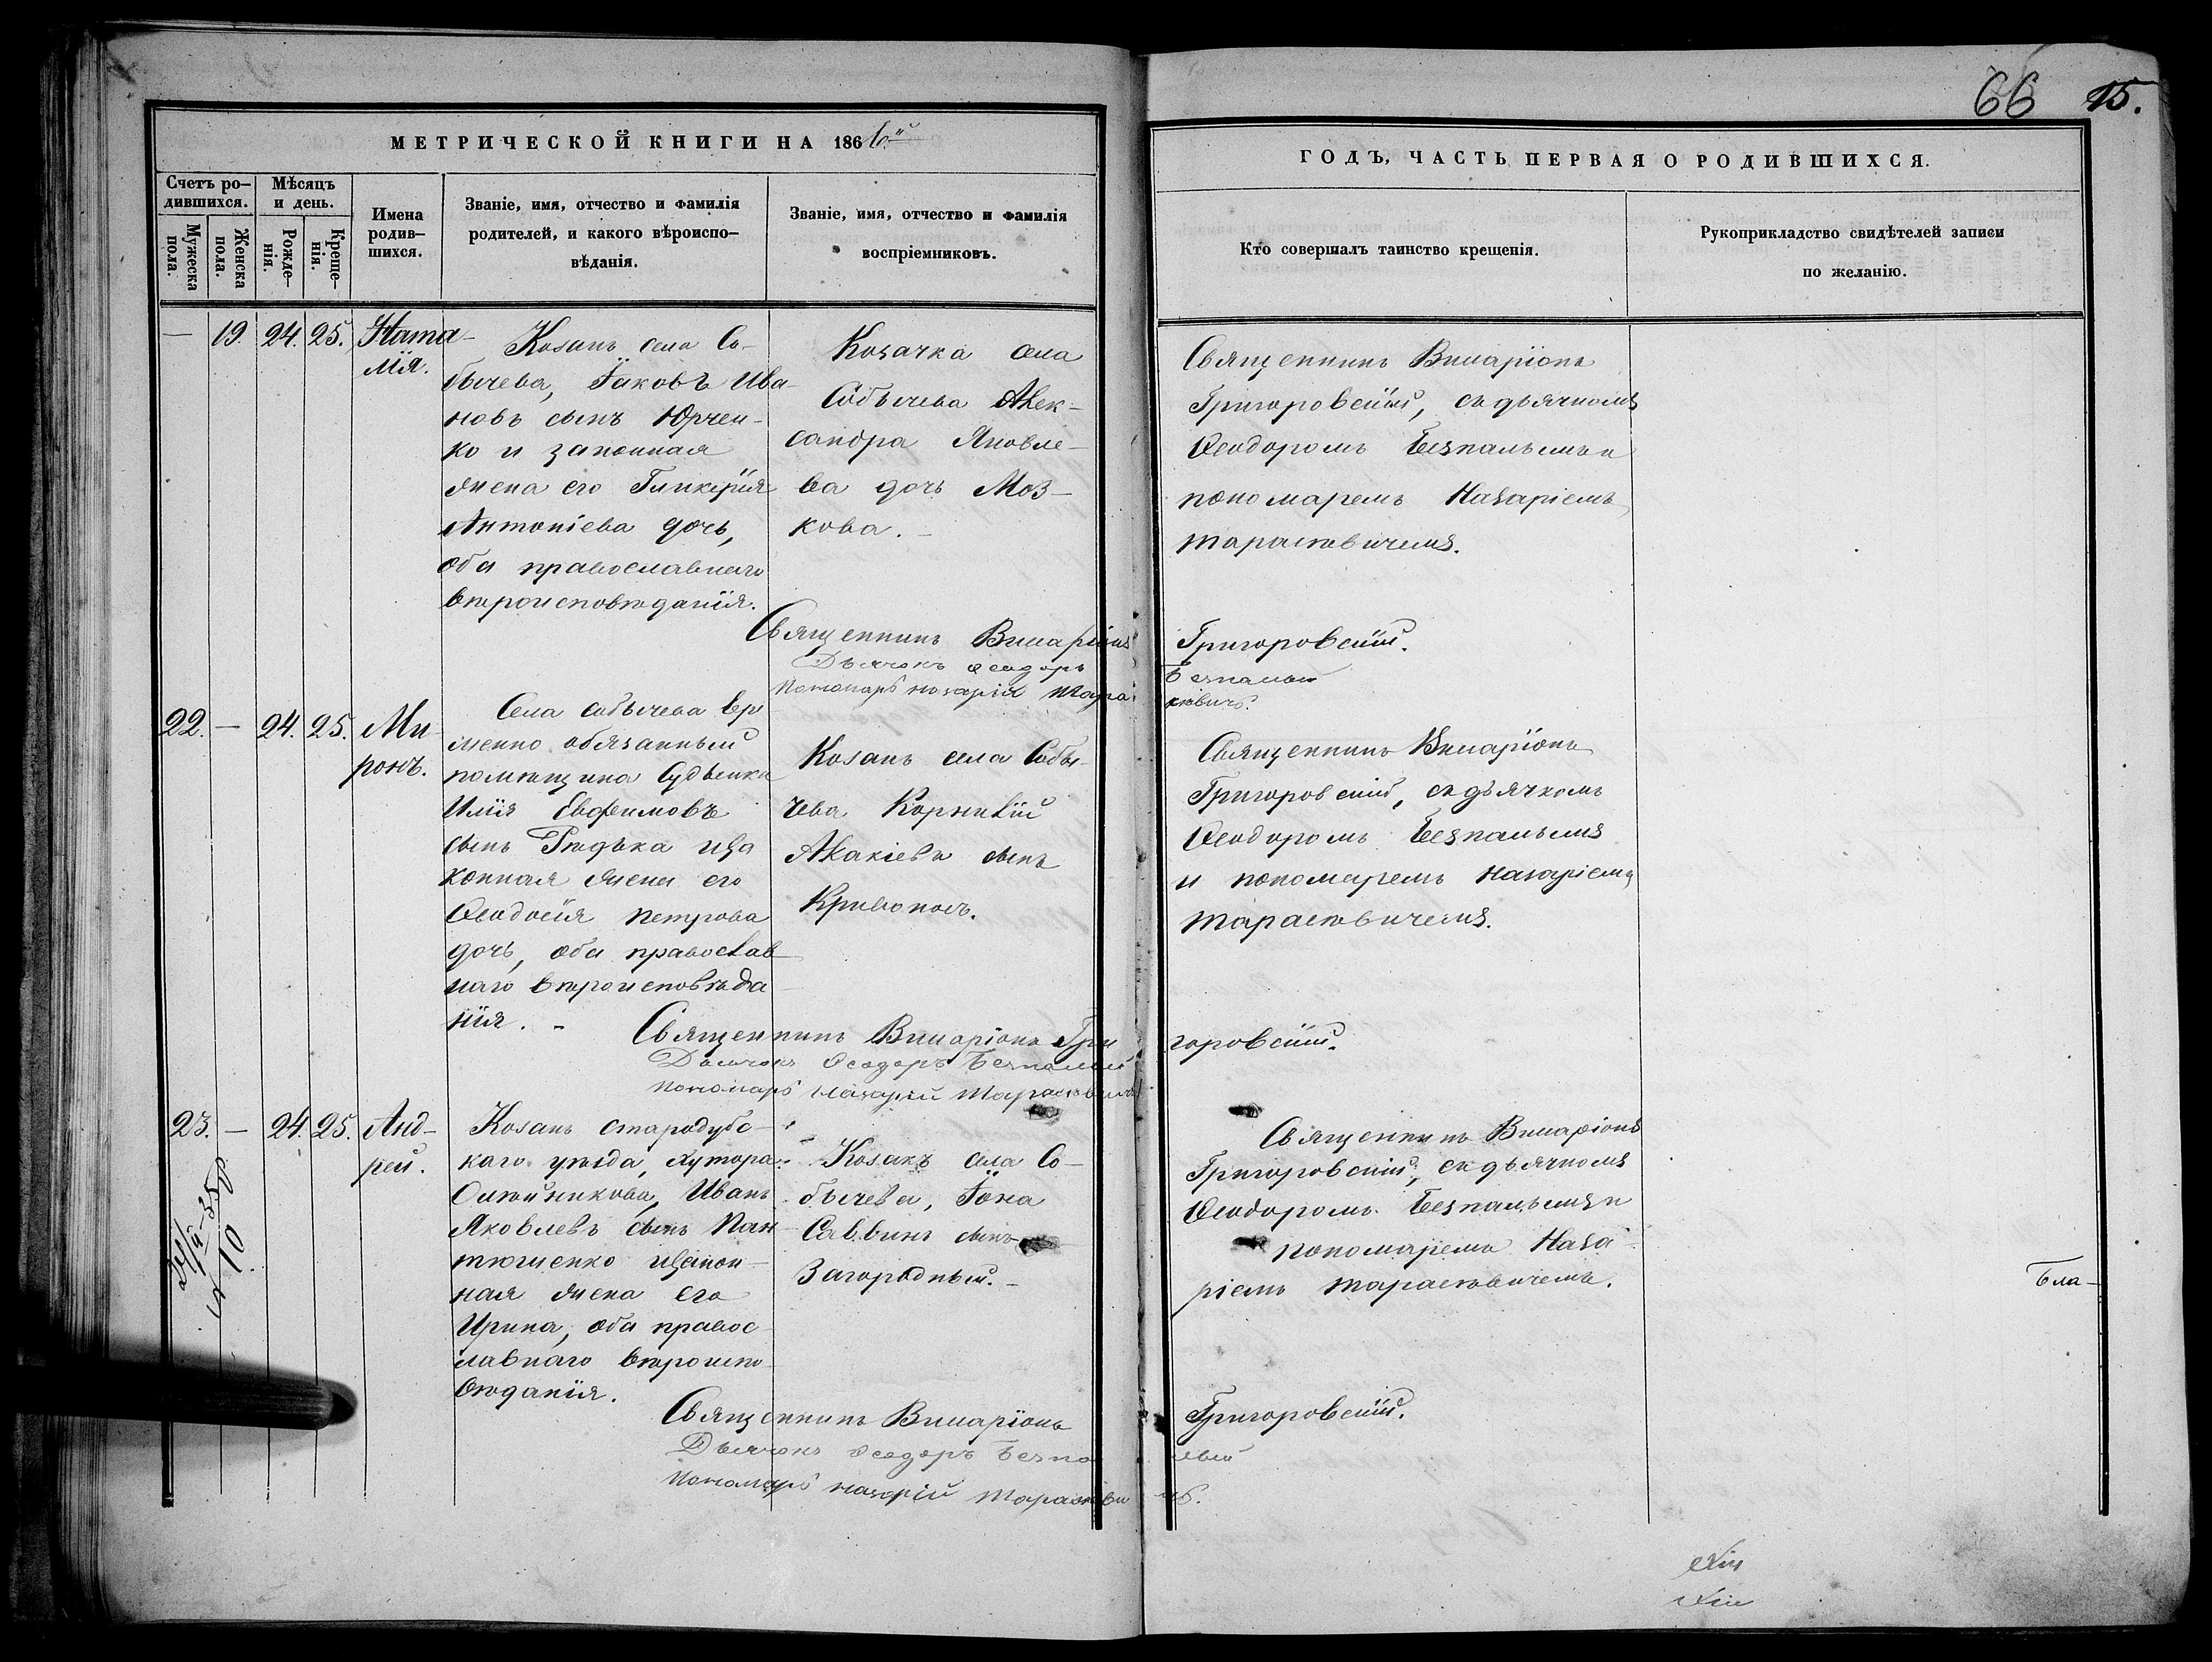 66 15.
МЕТРИЧЕСКОЙ КНИГИ НА 1866й
ГОДЪ, ЧАСТЬ ПЕРВАЯ О РОДИВШИХСЯ.
Счетъ ро-
дившихся.
Мужеска
пола.
Женска
пола.
Мѣсяцъ
и день.
Рожде-
нія.
Креще-
нія.
Имена
родив-
шихся.
Званіе, имя, отчество и фамилія
родителей, и какого вѣроиспо-
вѣданія.
Званіе, имя, отчество и фамилія
воспріемниковъ.
Кто совершалъ таинство крещенія.
Рукоприкладство свидѣтелей записи
по желанію.
— 19. 24. 25.
Ната-
лія.
Козакъ села Со-
бычева, Іаковъ Ива-
новъ сынъ Юрчен-
ко и законная
жена его Гликерія
Антоніева дочь,
оба православнаго
вѣроисповѣданія.
Козачка села
Собычева Алек-
сандра Яковле-
ва дочь Моз-
кова.
Священникъ Виларіонъ
Григоровскій, съ дьячкомъ
Феодоромъ Безпалымъ и
пономаремъ Назаріемъ
Тарасевичемъ.
Священникъ Виларіонъ Григоровскій.
Дьячокъ Феодоръ Безпалый
Пономарь Назарій Тарасевичъ.
22. — 24. 25.
Ми-
ронъ.
Села Собычева вре
менно обязанный
помѣщика Судьенки
Илія Евфимовъ
сынъ Рѣдька и за
конная жена его
Феодосія Петрова
дочь, оба православ-
наго вѣроисповѣда-
нія.
Козакъ села Собы-
чева Корнилій
Акакіевъ сынъ
Кривоносъ.
Священникъ Виларіонъ
Григоровскій, съ дьячкомъ
Феодоромъ Безпалымъ
и пономаремъ Назаріемъ
Тарасевичемъ.
Священникъ Виларіонъ Григоровскій.
Дьячокъ Феодоръ Безпалый
Пономарь Назарій Тарасевичъ
23. — 24. 25.
Анд-
рей.
Козакъ Стародубс-
каго уѣзда, хутора
Олейникова, Иванъ
Яковлевъ сынъ Пан-
тюшенко и закон-
ная жена его
Ирина, оба правос-
лавнаго вѣроиспо-
вѣданія.
Козакъ села Со-
бычева, Іона
Саввинъ сынъ
Загородный.
Священникъ Виларіонъ
Григоровскій, съ дьячкомъ
Феодоромъ Безпалымъ и
пономаремъ Наза-
ріемъ Тарасевичемъ.
Бла-
№ 10
Священникъ Виларіонъ Григоровскій.
Дьячокъ Феодоръ Безпалый
Пономарь Назарій Тарасевичъ.